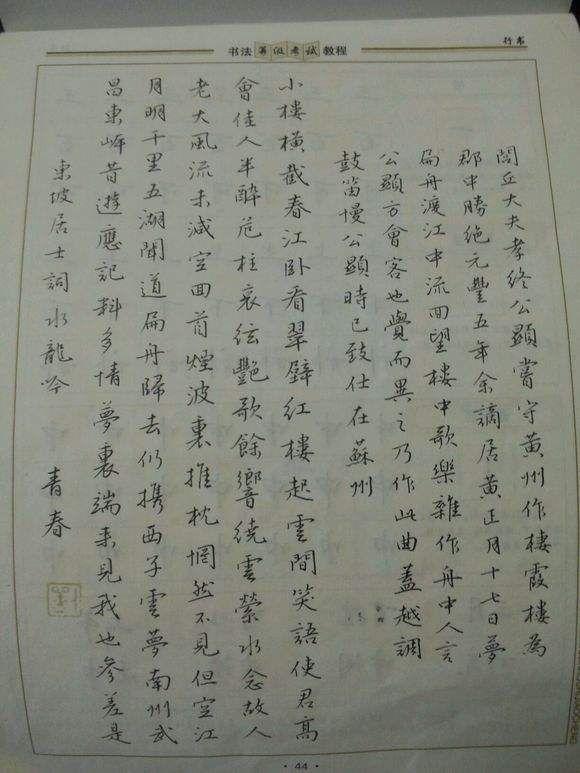 书法等级考试教程
行书
閭丘大夫孝终公顯嘗守黄州作棲霞樓為
郡中勝絶元豐五年余謫居黄正月十七日夢
扁舟渡江中流回望樓中歌樂雜作舟中人言
公顯方會客也覺而異之乃作此曲蓋越調
鼓笛慢公顯時已致仕在蘇州
小樓橫截春江卧看翠壁紅樓起雲間笑語使君高
會佳人半醉危柱哀絃艷歌餘響繞雲縈水念故人
老大風流未減空回首煙波裏推枕惘然不見但空江
月明千里五湖聞道扁舟歸去仍携西子雲夢南州武
昌東岸昔遊應記料多情夢裏端来見我也参差是
東坡居士詞水龍吟 青春
·44·